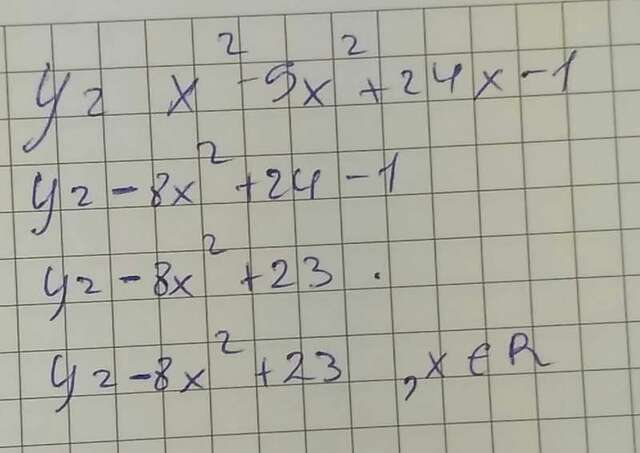 y = x² - 9x² + 24x - 1
y = -8x² + 24 - 1
y = -8x² + 23 .
y = -8x² + 23 , x ∈ R